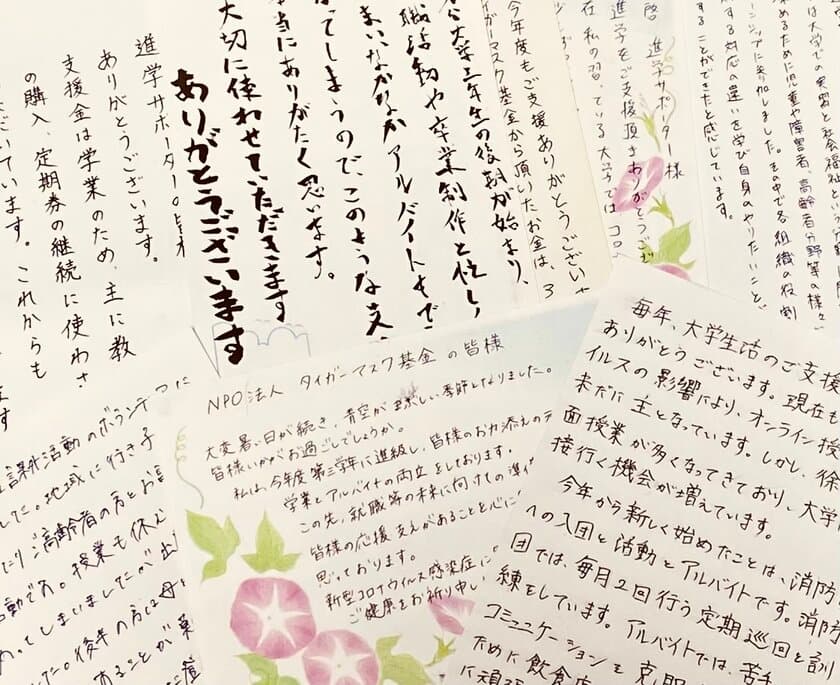 進学サポーターの皆
ありがとうございます。
支援金は学業のため、主に教
の購入、定期券の継続に使わさ
ています。これからも
ありがとうございます
大切に使わせていただきます
当にありがたく思います。
ってしまうので、このような支
まい、なかなかアルバイトもで
職活動や卒業制作と忙し
大学三年生の後期が始まり、
今年度もご支援ありがとうござい
イガーマスク基金から頂いたお金は、3
啓 進学サポーター様
進学をご支援頂きありがとうござ
在私の習っている大学ではコロ
は大学での実習と社会福祉
ーンシップに参加しました。その中で各組織の役割
めるために児童や障害者、高齢者分野等の様々
する対応の違いを学び自身のやりたいこと、
することができたと感じています。
NPO法人 タイガーマスク基金 の皆様
大変暑い日が続き、青空が眩しい季節となりました。
皆様いかがお過ごしでしょうか。
私は、今年度第三学年に進級し、皆様のお力添えの
学業とアルバイトの両立をしております。
この先、就職等の未来に向けての準備
皆様の応援、支えがあることを心に
思っております。
新型コロナウイルス感染症に
ご健康をお祈り申し
毎年、大学生活のご支援
ありがとうございます。現在
イルスの影響により、オンライン授
未だに主となっています。しかし、徐
面授業が多くなってきており、大学
接行く機会が増えています。
今年から新しく始めたことは、消防
への入団と活動とアルバイトです。消防
団では、毎月2回行う定期巡回と訓
練をしています。アルバイトでは、苦手
コミュニケーションを克服
ために飲食店
に頑張
課外活動のボランティアに
した。地域に行き子
たり高齢者の方とお話
動であ。授業も休え
ってしまいましたが
した。後年の方には
あることが